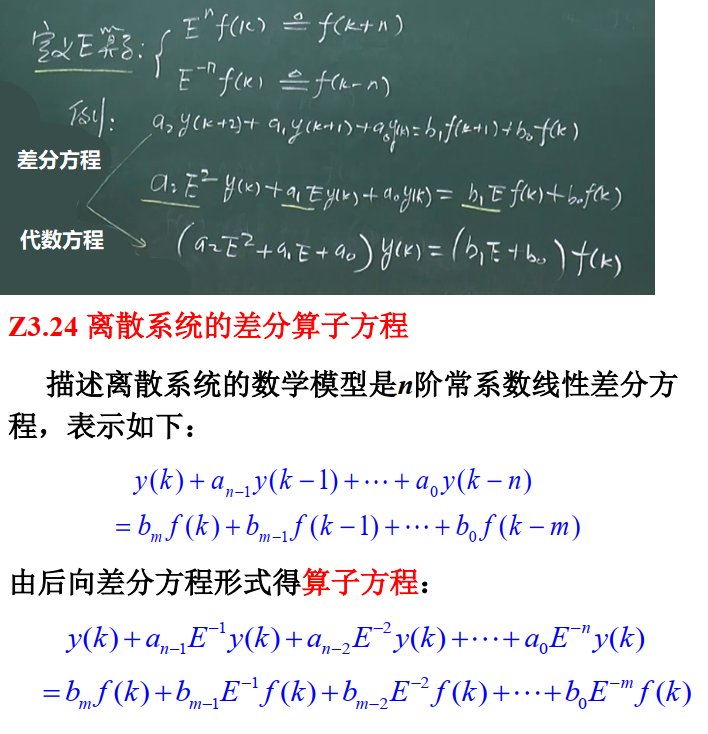 定义E算子: { Eⁿf(k) ≙ f(k+n)
E⁻ⁿf(k) ≙ f(k-n)
例: a₂y(k+2)+a₁y(k+1)+a₀y(k)=b₁f(k+1)+b₀f(k)
差分方程
a₂E²y(k)+a₁Ey(k)+a₀y(k)=b₁Ef(k)+b₀f(k)
代数方程
(a₂E²+a₁E+a₀)y(k)=(b₁E+b₀)f(k)
Z3.24 离散系统的差分算子方程
描述离散系统的数学模型是n阶常系数线性差分方
程，表示如下：
y(k)+aₙ₋₁y(k−1)+⋯+a₀y(k−n)
=bₘf(k)+bₘ₋₁f(k−1)+⋯+b₀f(k−m)
由后向差分方程形式得算子方程：
y(k)+aₙ₋₁E⁻¹y(k)+aₙ₋₂E⁻²y(k)+⋯+a₀E⁻ⁿy(k)
=bₘf(k)+bₘ₋₁E⁻¹f(k)+bₘ₋₂E⁻²f(k)+⋯+b₀E⁻ᵐf(k)